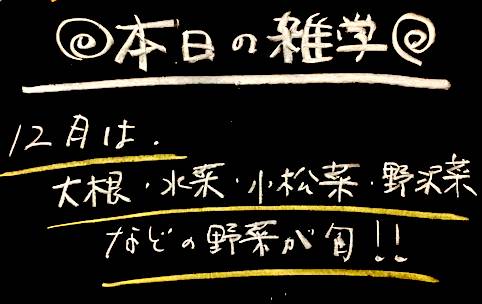 本日の雑学
12月は、
大根・水菜・小松菜・野沢菜
などの野菜が旬!!